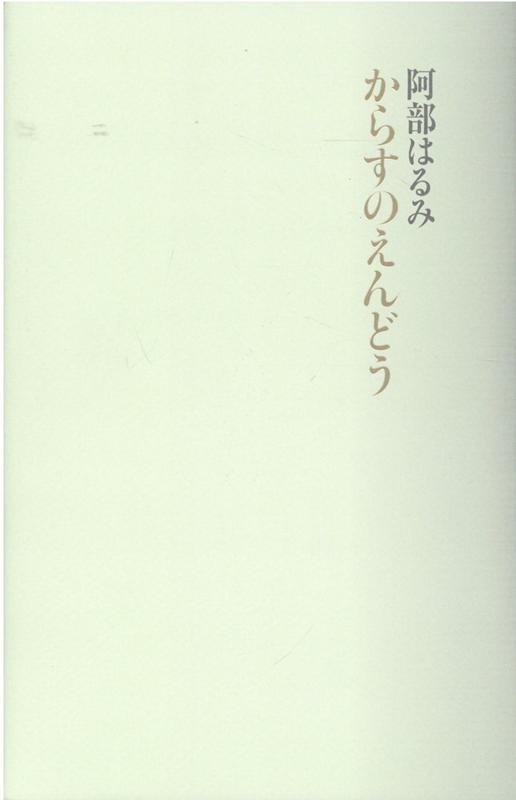 阿部はるみ
からすのえんどう